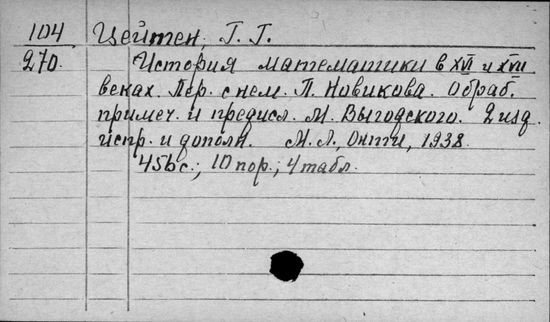 104 Цейтен, Г. Г.
270. История математики в XVI и XVII
веках. Пер. с нем. П. Новикова. Обраб.
примеч. и предисл. М. Выгодского. 2 изд.
испр. и дополн. М. Л., Онти, 1938.
456 с.; 10 пор.; 4 табл.